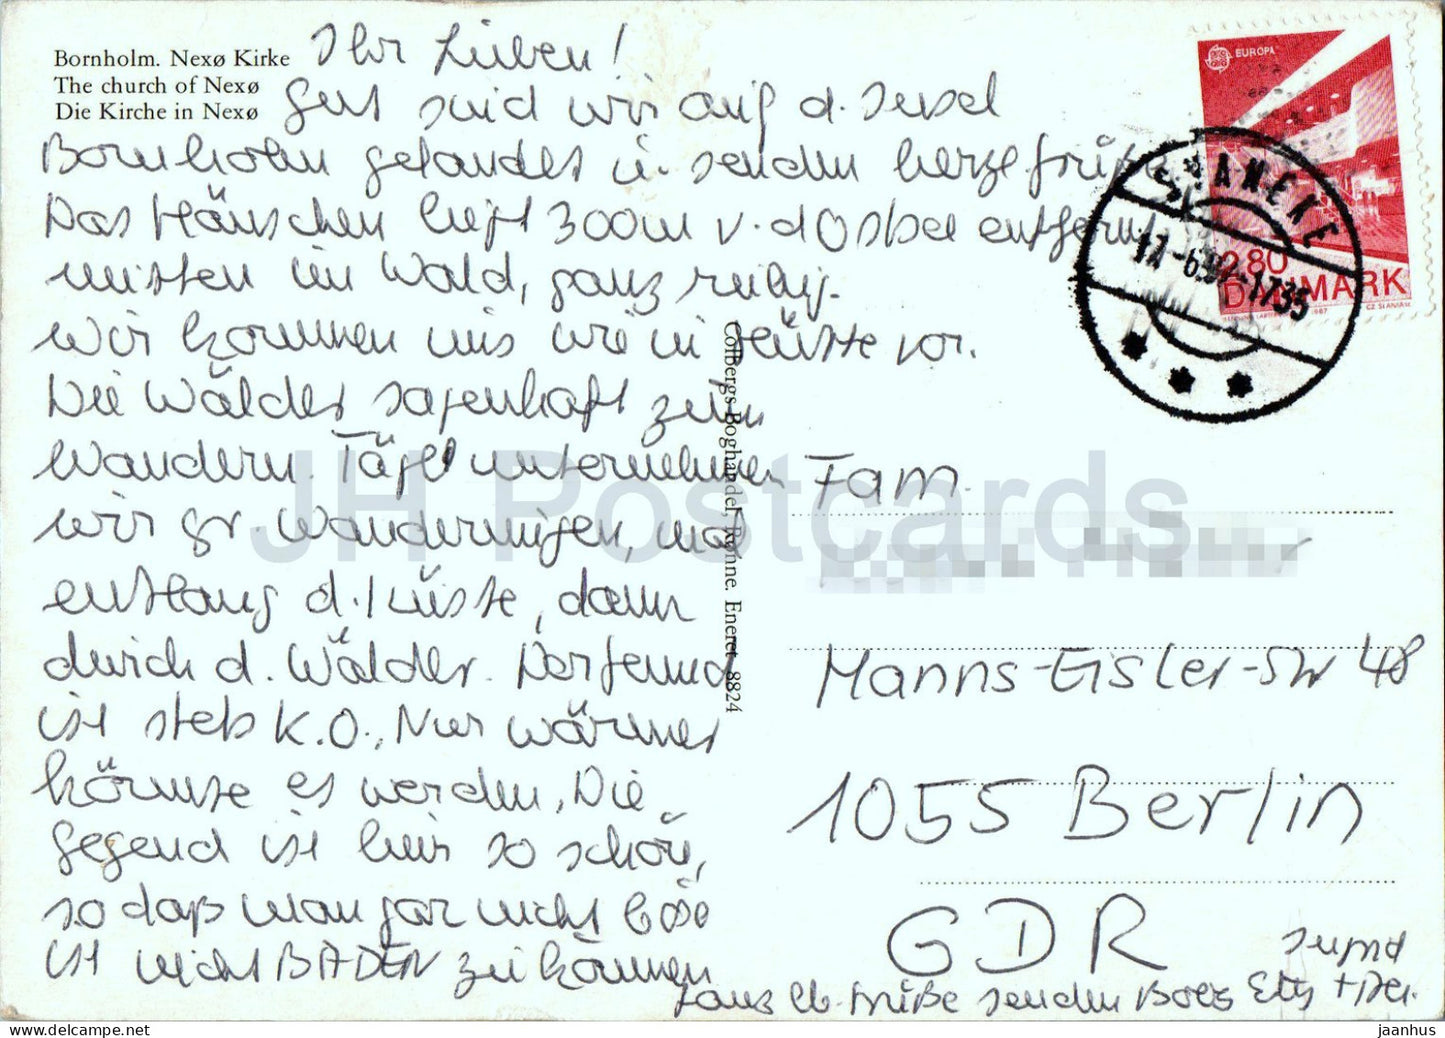 Bornholm. Nexø Kirke
The church of Nexø
Die Kirche in Nexø
Ihr Lieben!
Gut sind wir auf d. Insel
Bornholm gelandet u. senden herzl. Grüße
Das Häuschen liegt 300m v. d Ostsee entfernt
mitten im Wald, ganz ruhig.
Wir kommen uns wie in Küste vor.
Die Wälder sagenhaft zum
Wandern. Tägl unternehmen
wir gr. Wanderungen, mal
entlang d. Küste, dann
durch d. Wälder. Der Hund
ist stets K.O., Nur wärmer
könnte es werden. Die
Gegend ist hier so schön,
so daß man gar nicht böse
ist nicht BADEN zu können
Ganz lb. Grüße senden
Colbergs Boghandel, Rønne. Eneret 8824
EUROPA
2.80
DANMARK
SVANEKE
JH Postcards
Fam.
Hanns-Eisler-Str 48
1055 Berlin
GDR
jaanhus